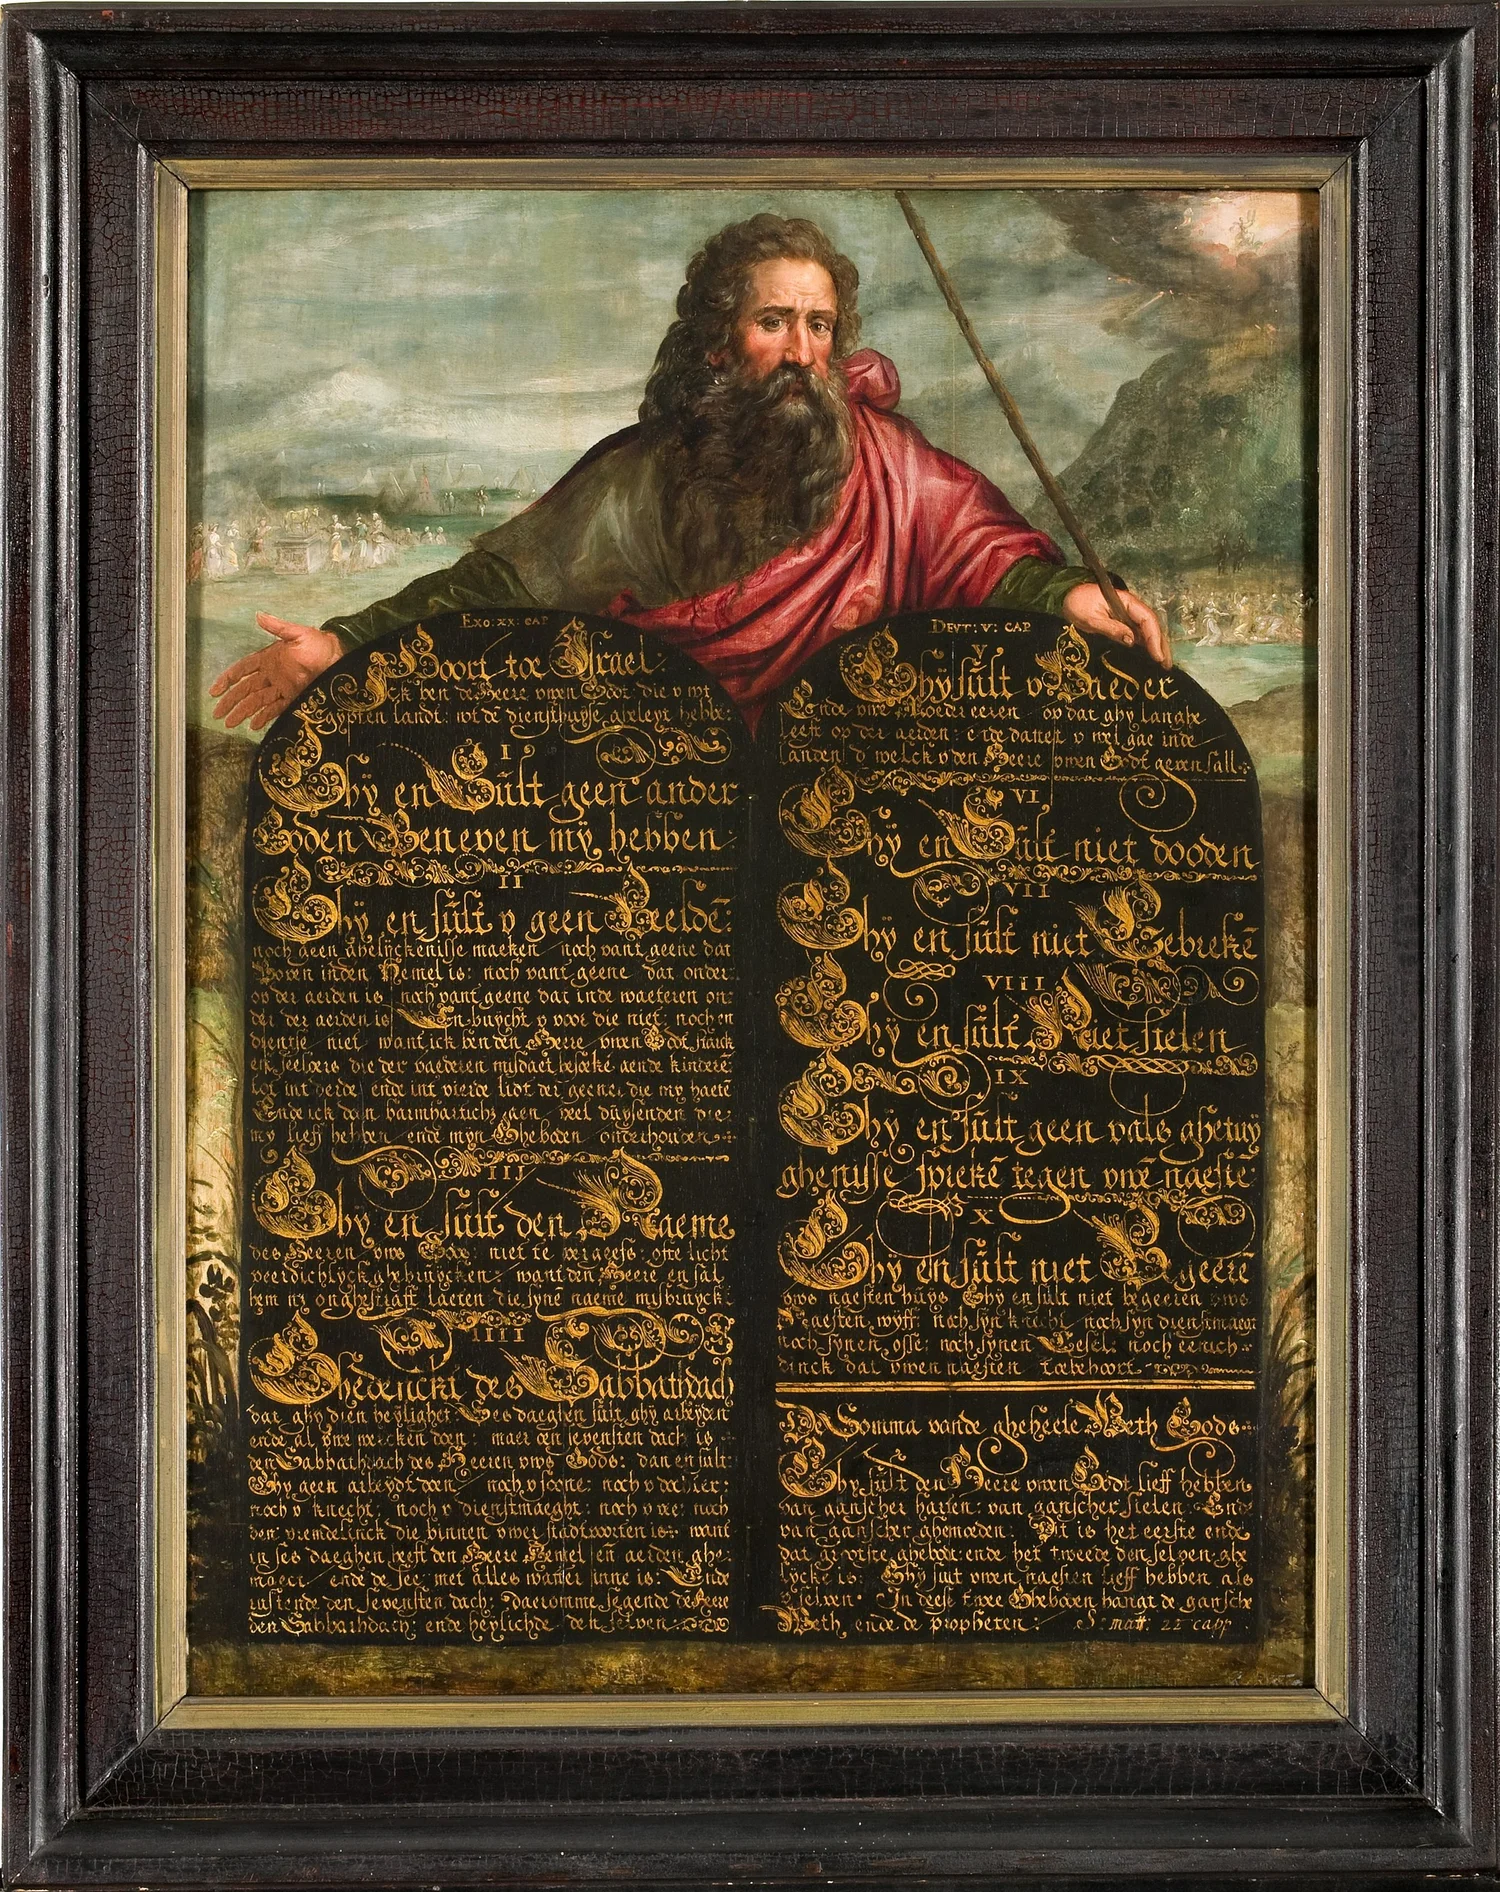 EXO: XX: CAP
Hoort toe Israel
Ick ben de Heere uwen Godt die u wt
Egypten landt: wt dē diensthuyse gheleyt hebbe:
I
Ghÿ en Sult geen ander
Goden Beneven mÿ hebben
II
Ghÿ en sult v geen Beeldē:
noch geen ghelÿckenisse maeken noch vant geene dat
Boven inden Hemel is: noch vant geene dat onder
op der aerden is noch vant geene dat inde waeteren on:
der der aerden is En buycht v voor die niet: noch en
dientse niet want ick ben den Heere uwen Godt starck
die der vaederen misdaet besoeke aende kinderē
tot int derde ende int vierde lidt der geener die my haetē
Ende ick doen barmharticheden veel duysenden die:
my lieff hebben ende mÿn Gheboden onderhouden
III
Ghÿ en sult den Naeme
des Heeren uws Godts niet te vergeefs: ofte licht
veerdichlÿck ghebruycken: want den Heere en sal
hem niet onghestraft laeten die syne naeme misbruyckt:
IIII
Ghedenckt des Sabbathdach
dat ghy dien heÿlighet: Ses daeghen sult ghÿ arbeyden
ende al uwe wercken doen: maer den sevensten dach is
den Sabbathdach des Heeren uws Gods: dan en sult:
Ghy geen arbeydt doen noch v soone: noch v dochter:
noch v knecht: noch v dienstmaeght: noch v vee: noch
den vremdelinck die binnen uwer stadtpoorten is: want
in ses daeghen heeft den Heere Hemel en aerden ghe:
maect ende de see: met alles watter inne is: Ende
rustende den sevensten dach: daeromme segende de Heere
den Sabbathdach: ende heÿlichde den selven
DEVT: V: CAP
V
Ghÿ sult v Vaeder
Ende uwe Moeder eeren op dat ghy langhe
leeft op der aerden: ende dattet v wel gae inde
landen d welck v den Heere uwen Godt geven sall
VI
Ghÿ en Sult niet dooden
VII
Ghÿ en sult niet Eebrekē
VIII
Ghÿ en sult Niet stelen
IX
Ghÿ en sult geen vals ghetuy
ghenisse sprekē tegen uwē naestē
X
Ghÿ en sult niet Begeerē
uws naesten huys Ghy en sult niet begeeren uws
Naesten wyff: noch syn knecht noch syn dienstmaegt
noch synen osse: noch synen Eesel: noch eenich
dinck dat uwen naesten toebehoort
De Somma vande gheheele Weth Gods
Ghy sult den Heere uwen Godt lieff hebben
van ganscher harten: van ganscher sielen: Ende
van ganscher ghemoeden: Dit is het eerste ende
dat grootste ghebodt: ende het tweede den selven ghe
lÿcke is: Ghÿ sult uwen naesten lieff hebben als
v selven: In dese twee Gheboden hangt de gansche
Weth ende de propheten: S: matt: 22 capp